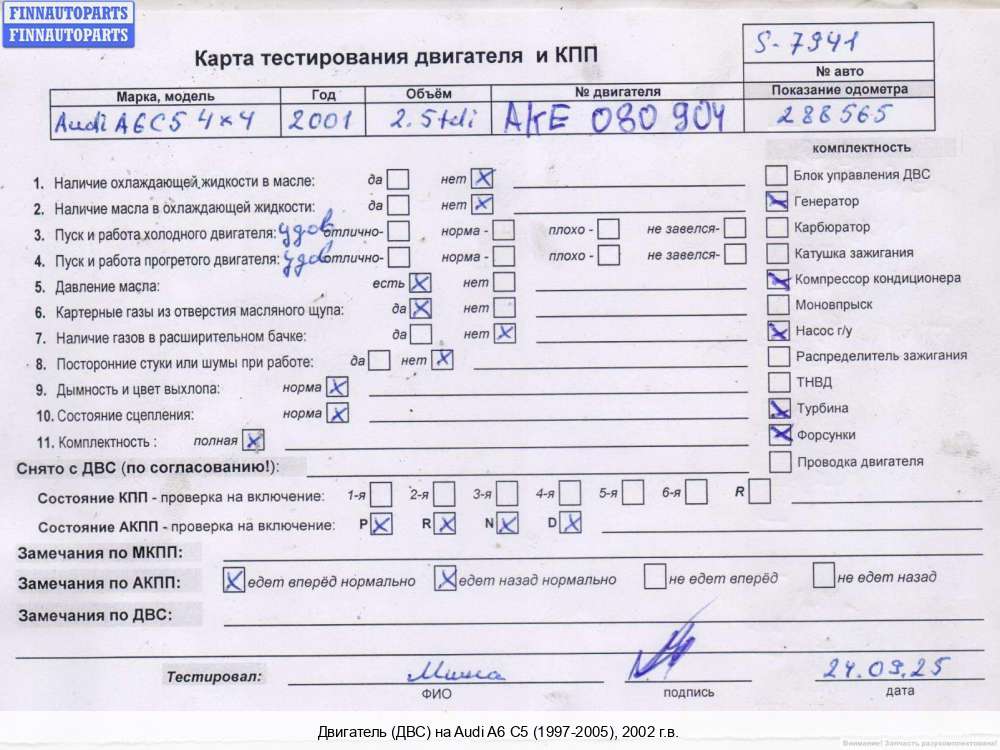 FINNAUTOPARTS
FINNAUTOPARTS
Карта тестирования двигателя и КПП
S-7941
№ авто
Марка, модель Год Объём № двигателя Показание одометра
Audi A6C5 4x4 2001 2.5tdi AKE 080904 288565
комплектность
1. Наличие охлаждающей жидкости в масле: да нет X
Блок управления ДВС
2. Наличие масла в охлаждающей жидкости: да нет X
Генератор X
3. Пуск и работа холодного двигателя: удов отлично- норма - плохо - не завелся-
Карбюратор
4. Пуск и работа прогретого двигателя: удов отлично- норма - плохо - не завелся-
Катушка зажигания
5. Давление масла: есть X нет
Компрессор кондиционера X
6. Картерные газы из отверстия масляного щупа: да X нет
Моновпрыск
7. Наличие газов в расширительном бачке: да нет X
Насос г/у X
8. Посторонние стуки или шумы при работе: да нет X
Распределитель зажигания
9. Дымность и цвет выхлопа: норма X
ТНВД
10. Состояние сцепления: норма X
Турбина X
11. Комплектность : полная X
Форсунки X
Снято с ДВС (по согласованию!):
Проводка двигателя
Состояние КПП - проверка на включение: 1-я 2-я 3-я 4-я 5-я 6-я R
Состояние АКПП - проверка на включение: P X R X N X D X
Замечания по МКПП:
Замечания по АКПП: X едет вперёд нормально X едет назад нормально не едет вперёд не едет назад
Замечания по ДВС:
Тестировал: 24.09.25
ФИО подпись дата
Двигатель (ДВС) на Audi A6 C5 (1997-2005), 2002 г.в.
Внимание! Запчасть разукомплектована!